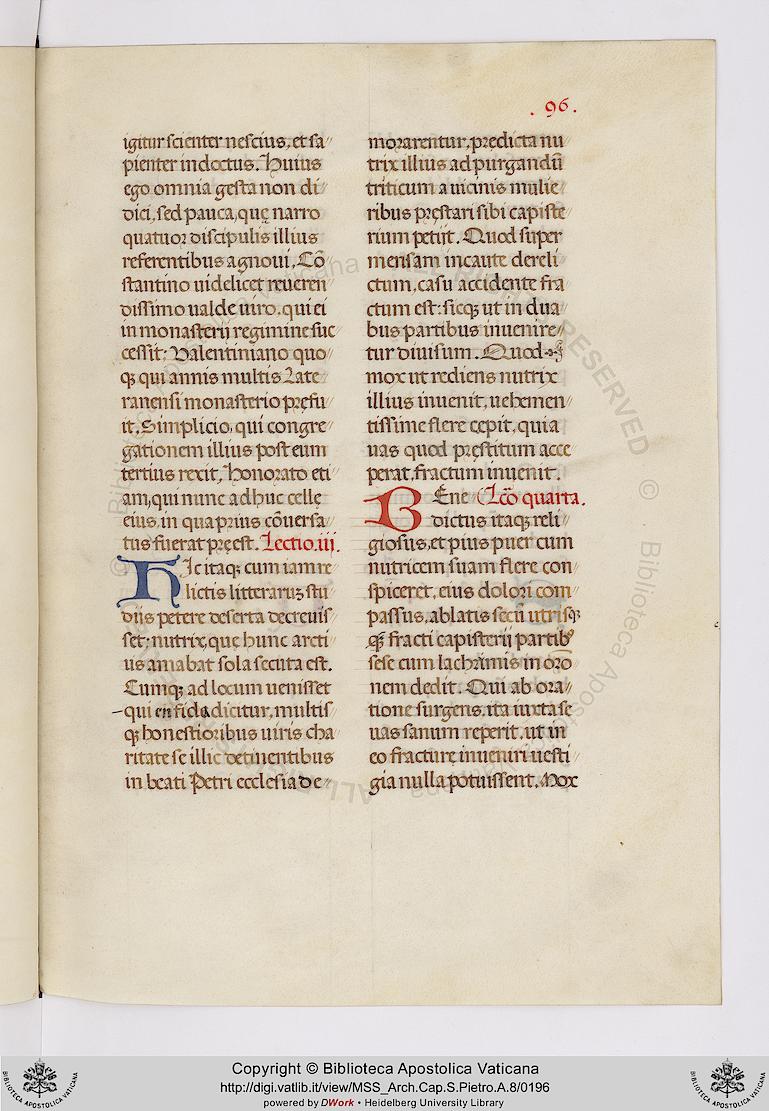 .96.
igitur scienter nescius, et sa
pienter indoctus. Huius
ego omnia gesta non di
dici, sed pauca, quę narro
quatuor discipulis illius
referentibus agnoui, Cō
stantino uidelicet reueren
dissimo ualde uiro. qui ei
in monasterij regimine suc
cessit: Valentiniano quo
qȝ qui annis multis Late
ranensi monasterio pręfu
it. Simplicio, qui congre
gationem illius post eum
tertius rexit, Honorato eti
am, qui nunc adhuc cellę
eius, in qua prius cōuersa
tus fuerat pręest. Lectio. iii.
Hic itaqȝ cum iam re
lictis litteraruȝ stu
dijs petere deserta decreuis
set: nutrix, quę hunc arcti
us amabat sola secuta est.
Cumqȝ ad locum uenisset
qui enfida dicitur, multis
qȝ honestioribus uiris cha
ritate se illic detinentibus
in beati Petri ecclesia de
morarentur, prędicta nu
trix illius ad purgandū
triticum a uicinis mulie
ribus pręstari sibi capiste
rium petijt. Quod super
mensam incaute dereli
ctum, casu accidente fra
ctum est: sicqȝ ut in dua
bus partibus inuenire
tur diuisum. Quod
mox ut rediens nutrix
illius inuenit, uehemen
tissime flere cępit, quia
uas quod pręstitum acce
perat, fractum inuenit.
BEne Lcō quarta.
dictus itaqȝ reli
giosus, et pius puer cum
nutricem suam flere con
spiceret, eius dolori com
passus, ablatis secū utrisqȝ
fracti capisterij partibȝ
sese cum lachrimis in orō
nem dedit. Qui ab ora
tione surgens, ita iuxta se
uas sanum reperit, ut in
eo fracturę inueniri uesti
gia nulla potuissent. Mox
Copyright © Biblioteca Apostolica Vaticana
http://digi.vatlib.it/view/MSS_Arch.Cap.S.Pietro.A.8/0196
powered by DWork • Heidelberg University Library
BIBLIOTECA APOSTOLICA VATICANA
BIBLIOTECA APOSTOLICA VATICANA